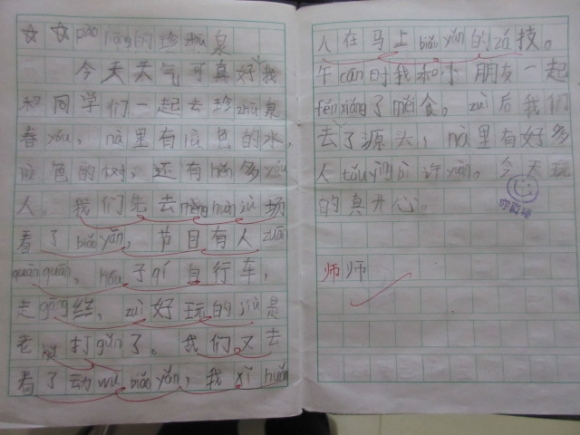 今天天气可真好,我
和同学们一起去珍zhū泉
春yóu,nà里有lǜ色的水,
色的树,还有hěn多
人。我们先去 场
看了biǎo yǎn,节目有人zuān
quān quān,hóu子qí自行车,
走gāng丝,zuì好玩的jiù是
老hǔ打gǔn了。我们又去
看了动wù biǎo yǎn,我xǐ huān
人在马上biǎo yǎn的zá技。
午cān时我和小朋友一起
fēn xiǎng了měi食。zuì后我们
去了源头,nà里有好多
人tóu yìng bì许yuàn。今天玩
的真开心。
师师